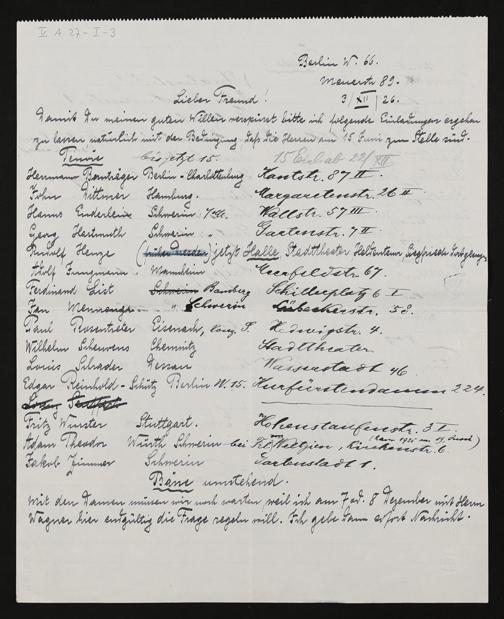 V A 27-I-3
Berlin W. 66.
Mauerstr 89.
3/XII/26.
Lieber Freund!
Damit Du meinen guten Willen verspürst bitte ich folgende Einladungen ergehen
zu lassen natürlich mit der Bedingung daß die Herren am 15 Juni zur Stelle sind.
Tenöre bis jetzt 15. 15 Einl. ab 22/XII
Hermann Berlin-Charlottenburg Kantstr. 87 II.
John Dittmer Hamburg. Margaretenstr. 26 II
Hanns Enderlein Schwerin Wallstr. 57 III
Georg Hartmuth Schwerin Gartenstr. 7 II
Rudolf Henze (früher Dresden) jetzt Halle, Stadttheater Heldentenor
Adolf Jungmann Mannheim Meerfeldstr 67.
Ferdinand List Schwerin Bamberg Schillerplatz 6 I
Jan Schwerin Lübeckerstr. 58.
Paul Eisenach, Hedwigstr. 4.
Wilhelm Chemnitz Stadttheater
Louis Schrader Dessau Wasserstadt 46
Edgar Reinhold-Schütz Berlin W. 15. Kurfürstendamm 224.
Fritz Wunster Stuttgart. Hohenstaufenstr. 3 I.
Adam Theodor Wurth Schwerin bei Kirchenstr. 6.
Jakob Zimmer Schwerin 1.
Bässe umstehend.
Mit den Damen müssen wir noch warten weil ich am 7 od. 8 Dezember mit Herrn
Wagner hier endgültig die Frage regeln will. Ich gebe dann sofort Nachricht.